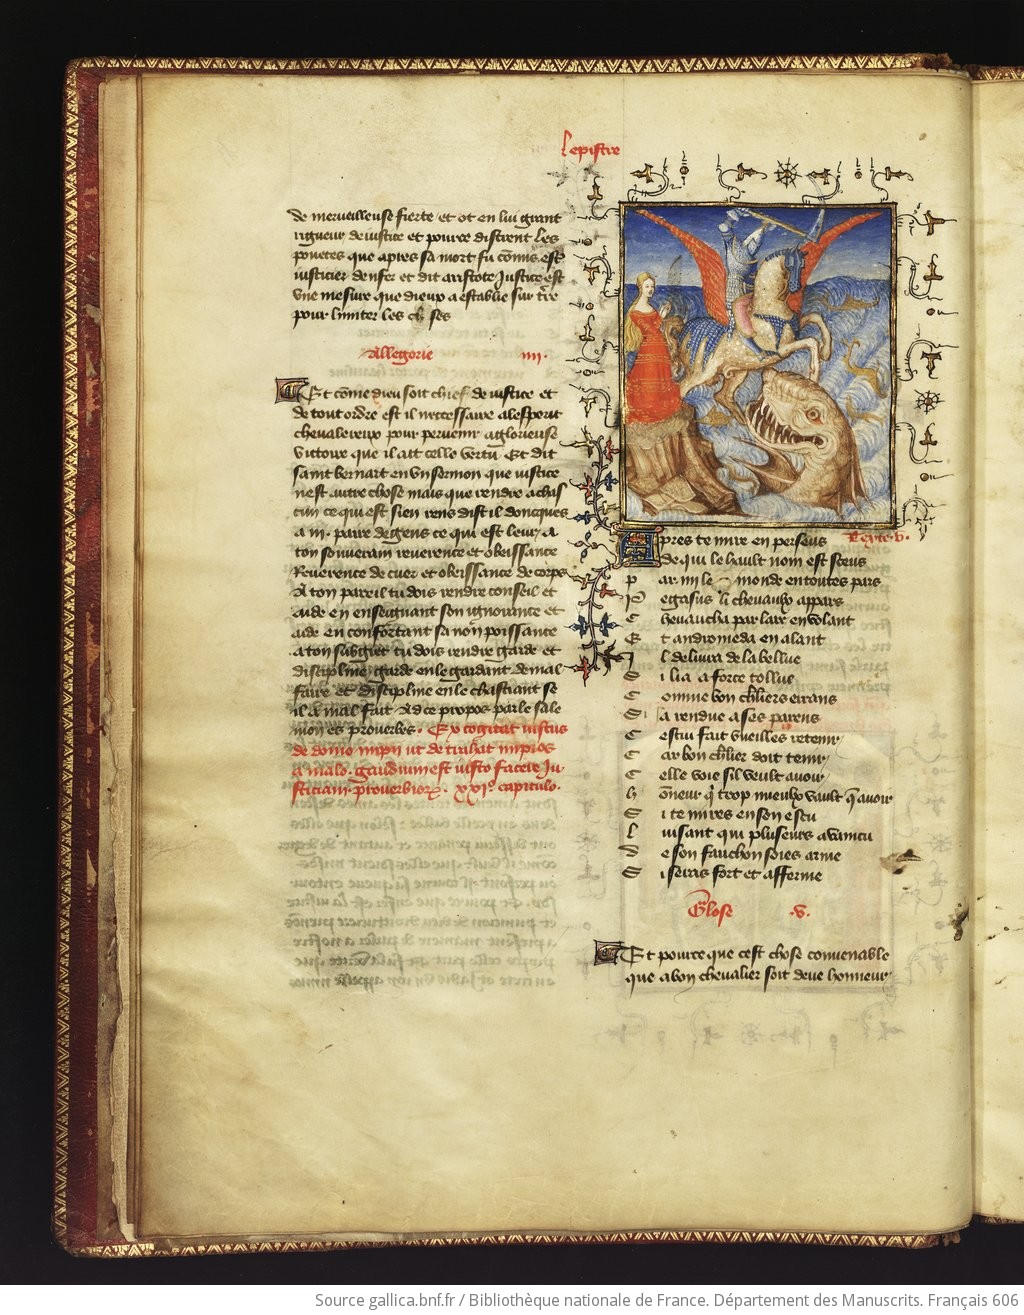 Lepistre
de merveilleuse fierte et ot en lui grant
rigueur de iustice et pource distrent les
pouetes que apres sa mort fu commis est
iusticier denfer et dit aristote Justice est
vne mesure que dieux a establie sur tre
pour limiter les choses
Allegorie iiii.
Et come dieu soit chief de iustice et
de tout ordre est il neccessaire alesperit
cheualereux pour peruenir a glorieuse
victoire que il ait celle vertu Et dit
saint bernart en vn sermon que iustice
nest autre chose mais que rendre a chas
cun ce qui est sien rens dist il doncques
a iii. paire de gens ce qui est leur a
ton souuerain reuerence et obeissance
Reuerence de cuer et obeissance de corps
A ton pareil tu dois rendre conseil et
aide en enseignant son ignorance et
aide en confortant sa non poissance
a ton subgiet tu dois rendre garde et
discipline garde en le gardant de mal
faire et discipline en le chastiant se
il a mal fait Ad ce propos parle sale
mon es prouerbes. Excogitat iustus
de domo impii ut detrahat impios
a malo. gaudium est iusto facere Ju
sticiam. prouerbiorum. xxi.º capitulo.
Texte .v.
Apres te mire en perseus
de qui le hault nom est sceus
par mi le monde en toutes pars
Pegasus li cheuaulx appars
Cheuaucha par lair en volant
Et andromeda en alant
Il deliura de la bellue
Si lla a force tollue
Comme bon chliers errans
Si la rendue a ses parens
Cestui fait vueilles retenir
Car bon chlier doit tenir
Celle voie sil veult auoir
honneur qi trop mieulx vault que auoir
Si te mires en son escu
Luisant qui plusieurs a vaincu
De son fauchon soies arme
Si seras fort et afferme
Glose .v.
Et pource que cest chose conuenable
que a bon cheualier soit deue honneur
Source gallica.bnf.fr / Bibliothèque nationale de France. Département des Manuscrits. Français 606